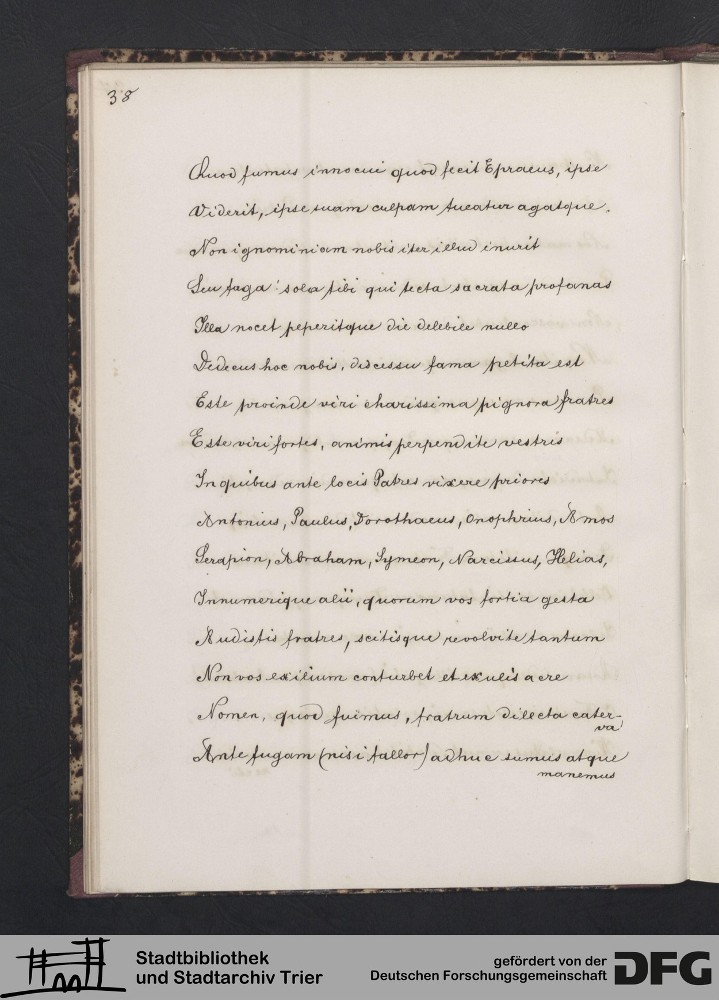 38
Quod fumus innocui quod fecit Epraeus, ipse
Viderit, ipse suam culpam tueatur agatque.
Non ignominiam nobis iter illud inurit
Seu faga: sola tibi qui tecta sacrata profanas
Illa nocet peperitque die delebile nullo
Dedecus hoc nobis, discessu fama petita est
Este proinde viri charissima pignora fratres
Este viri fortes, animis perpendite vestris
In quibus ante locis Patres vixere priores
Antonius, Paulus, Dorothaeus, Onophrius, Amos
Serapion, Abraham, Symeon, Narcissus, Helias,
Innumerique alii, quorum vos fortia gesta
Audistis fratres, scitisque revolvite tantum
Non vos exilium conturbet et exulis acre
Nomen, quod fuimus, fratrum dilecta cater-
va
Ante fugam (nisi fallor) adhuc sumus atque
manemus
Stadtbibliothek
und Stadtarchiv Trier
gefördert von der
Deutschen Forschungsgemeinschaft
DFG